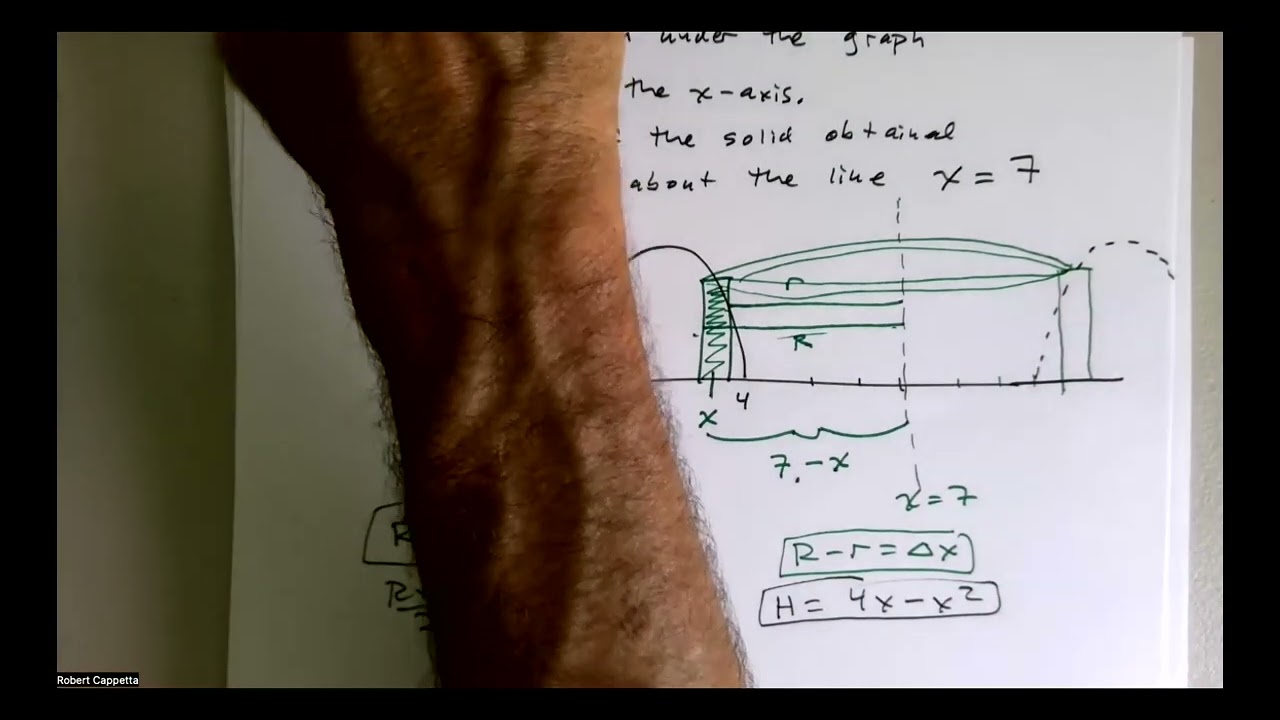 under the graph
the x-axis.
: the solid obtainal
about the line x = 7
r
R
4
x
7 - x
x = 7
R - r = Δx
H = 4x - x²
R
R
Robert Cappetta